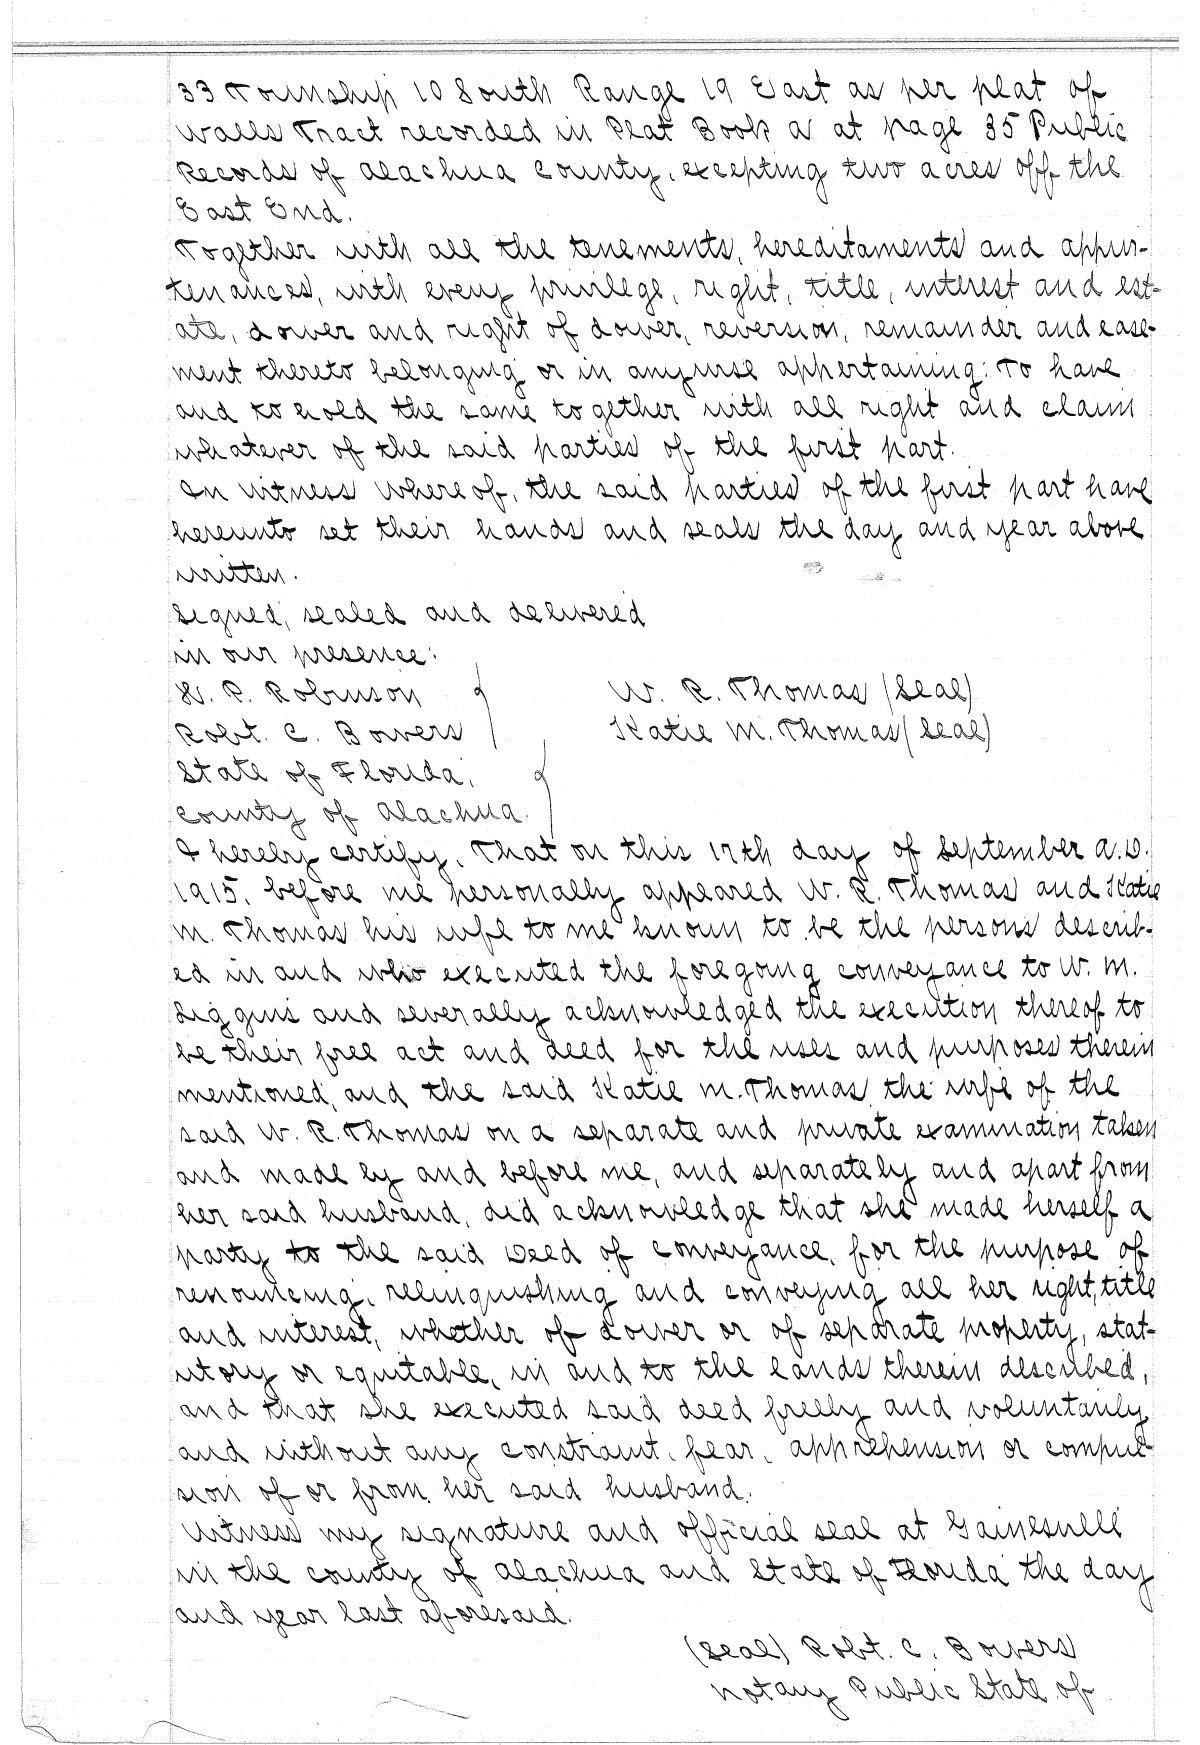 33 Township 10 South Range 19 East as per plat of
Walls Tract recorded in Plat Book A at page 35 Public
Records of Alachua County, excepting two acres off the
East End.
Together with all the tenements, hereditaments and appur-
tenances, with every privilege, right, title, interest and est-
ate, dower and right of dower, reversion, remainder and ease-
ment thereto belonging or in anywise appertaining: To have
and to hold the same together with all right and claim
whatever of the said parties of the first part.
In witness whereof, the said parties of the first part have
hereunto set their hands and seals the day and year above
written.
Signed, sealed and delivered
in our presence:
W. R. Thomas (Seal)
P. Robinson
Katie M. Thomas (Seal)
Robt. C. Bowers
State of Florida,
County of Alachua.
I hereby certify, That on this 17th day of September A.D.
1915, before me personally appeared W. R. Thomas and Katie
M. Thomas his wife to me known to be the persons describ-
ed in and who executed the foregoing conveyance to W. M.
Liggins and severally acknowledged the execution thereof to
be their free act and deed for the uses and purposes therein
mentioned, and the said Katie M. Thomas, the wife of the
said W. R. Thomas on a separate and private examination taken
and made by and before me, and separately and apart from
her said husband, did acknowledge that she made herself a
party to the said Deed of Conveyance, for the purpose of
renouncing, relinquishing and conveying all her right, title
and interest, whether of dower or of separate property, stat-
utory or equitable, in and to the lands therein described,
and that she executed said deed freely and voluntarily
and without any constraint, fear, apprehension or compul-
sion of or from her said husband.
Witness my signature and official seal at Gainesville
in the County of Alachua and State of Florida the day
and year last aforesaid.
(Seal) Robt. C. Bowers
Notary Public State of